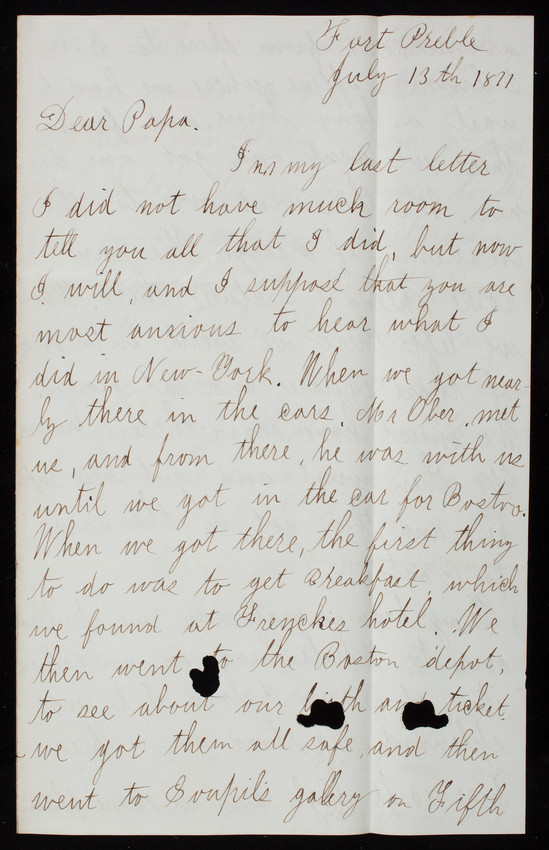 Fort Preble
July 13th 1871
Dear Papa.
In my last letter
I did not have much room to
tell you all that I did, but now
I will, and I suppose that you are
most anxious to hear what I
did in New-York. When we got near-
ly there in the cars, Mr Ober, met
us, and from there, he was with us
until we got in the car for Boston.
When we got there, the first thing
to do was to get Breakfast, which
we found at Frenches hotel. We
then went to the Boston depot,
to see about our birth and ticket.
we got them all safe, and then
went to Goupils gallery on Fifth